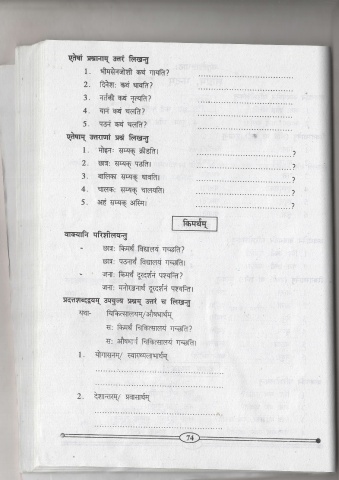 एतेषां प्रश्नानाम् उत्तरं लिखन्तु
1. भीमसेनजोशी कथं गायति? ..............................
2. दिनेशः कथं धावति? ..............................
3. नर्तकी कथं नृत्यति? ..............................
4. यानं कथं चलति? ..............................
5. पठनं कथं चलति? ..............................
एतेषाम् उत्तराणां प्रश्नं लिखन्तु
1. मोहनः सम्यक् क्रीडति। ..............................?
2. छात्रः सम्यक् पठति। ..............................?
3. बालिका सम्यक् धावति। ..............................?
4. चालकः सम्यक् चालयति। ..............................?
5. अहं सम्यक् अस्मि। ..............................?
किमर्थम्
वाक्यानि परिशीलयन्तु
- छात्रः किमर्थं विद्यालयं गच्छति?
छात्रः पठनार्थं विद्यालयं गच्छति।
- जनाः किमर्थं दूरदर्शनं पश्यन्ति?
जनाः मनोरञ्जनार्थं दूरदर्शनं पश्यन्ति।
प्रदत्तशब्दद्वयम् उपयुज्य प्रश्नम् उत्तरं च लिखन्तु
यथा- चिकित्सालयम्/औषधार्थम्
सः किमर्थं चिकित्सालयं गच्छति?
सः औषधार्थं चिकित्सालयं गच्छति।
1. योगासनम्/ स्वास्थ्यलाभार्थम्
..............................
..............................
2. देशान्तरम्/ प्रवासार्थम्
..............................
..............................
74